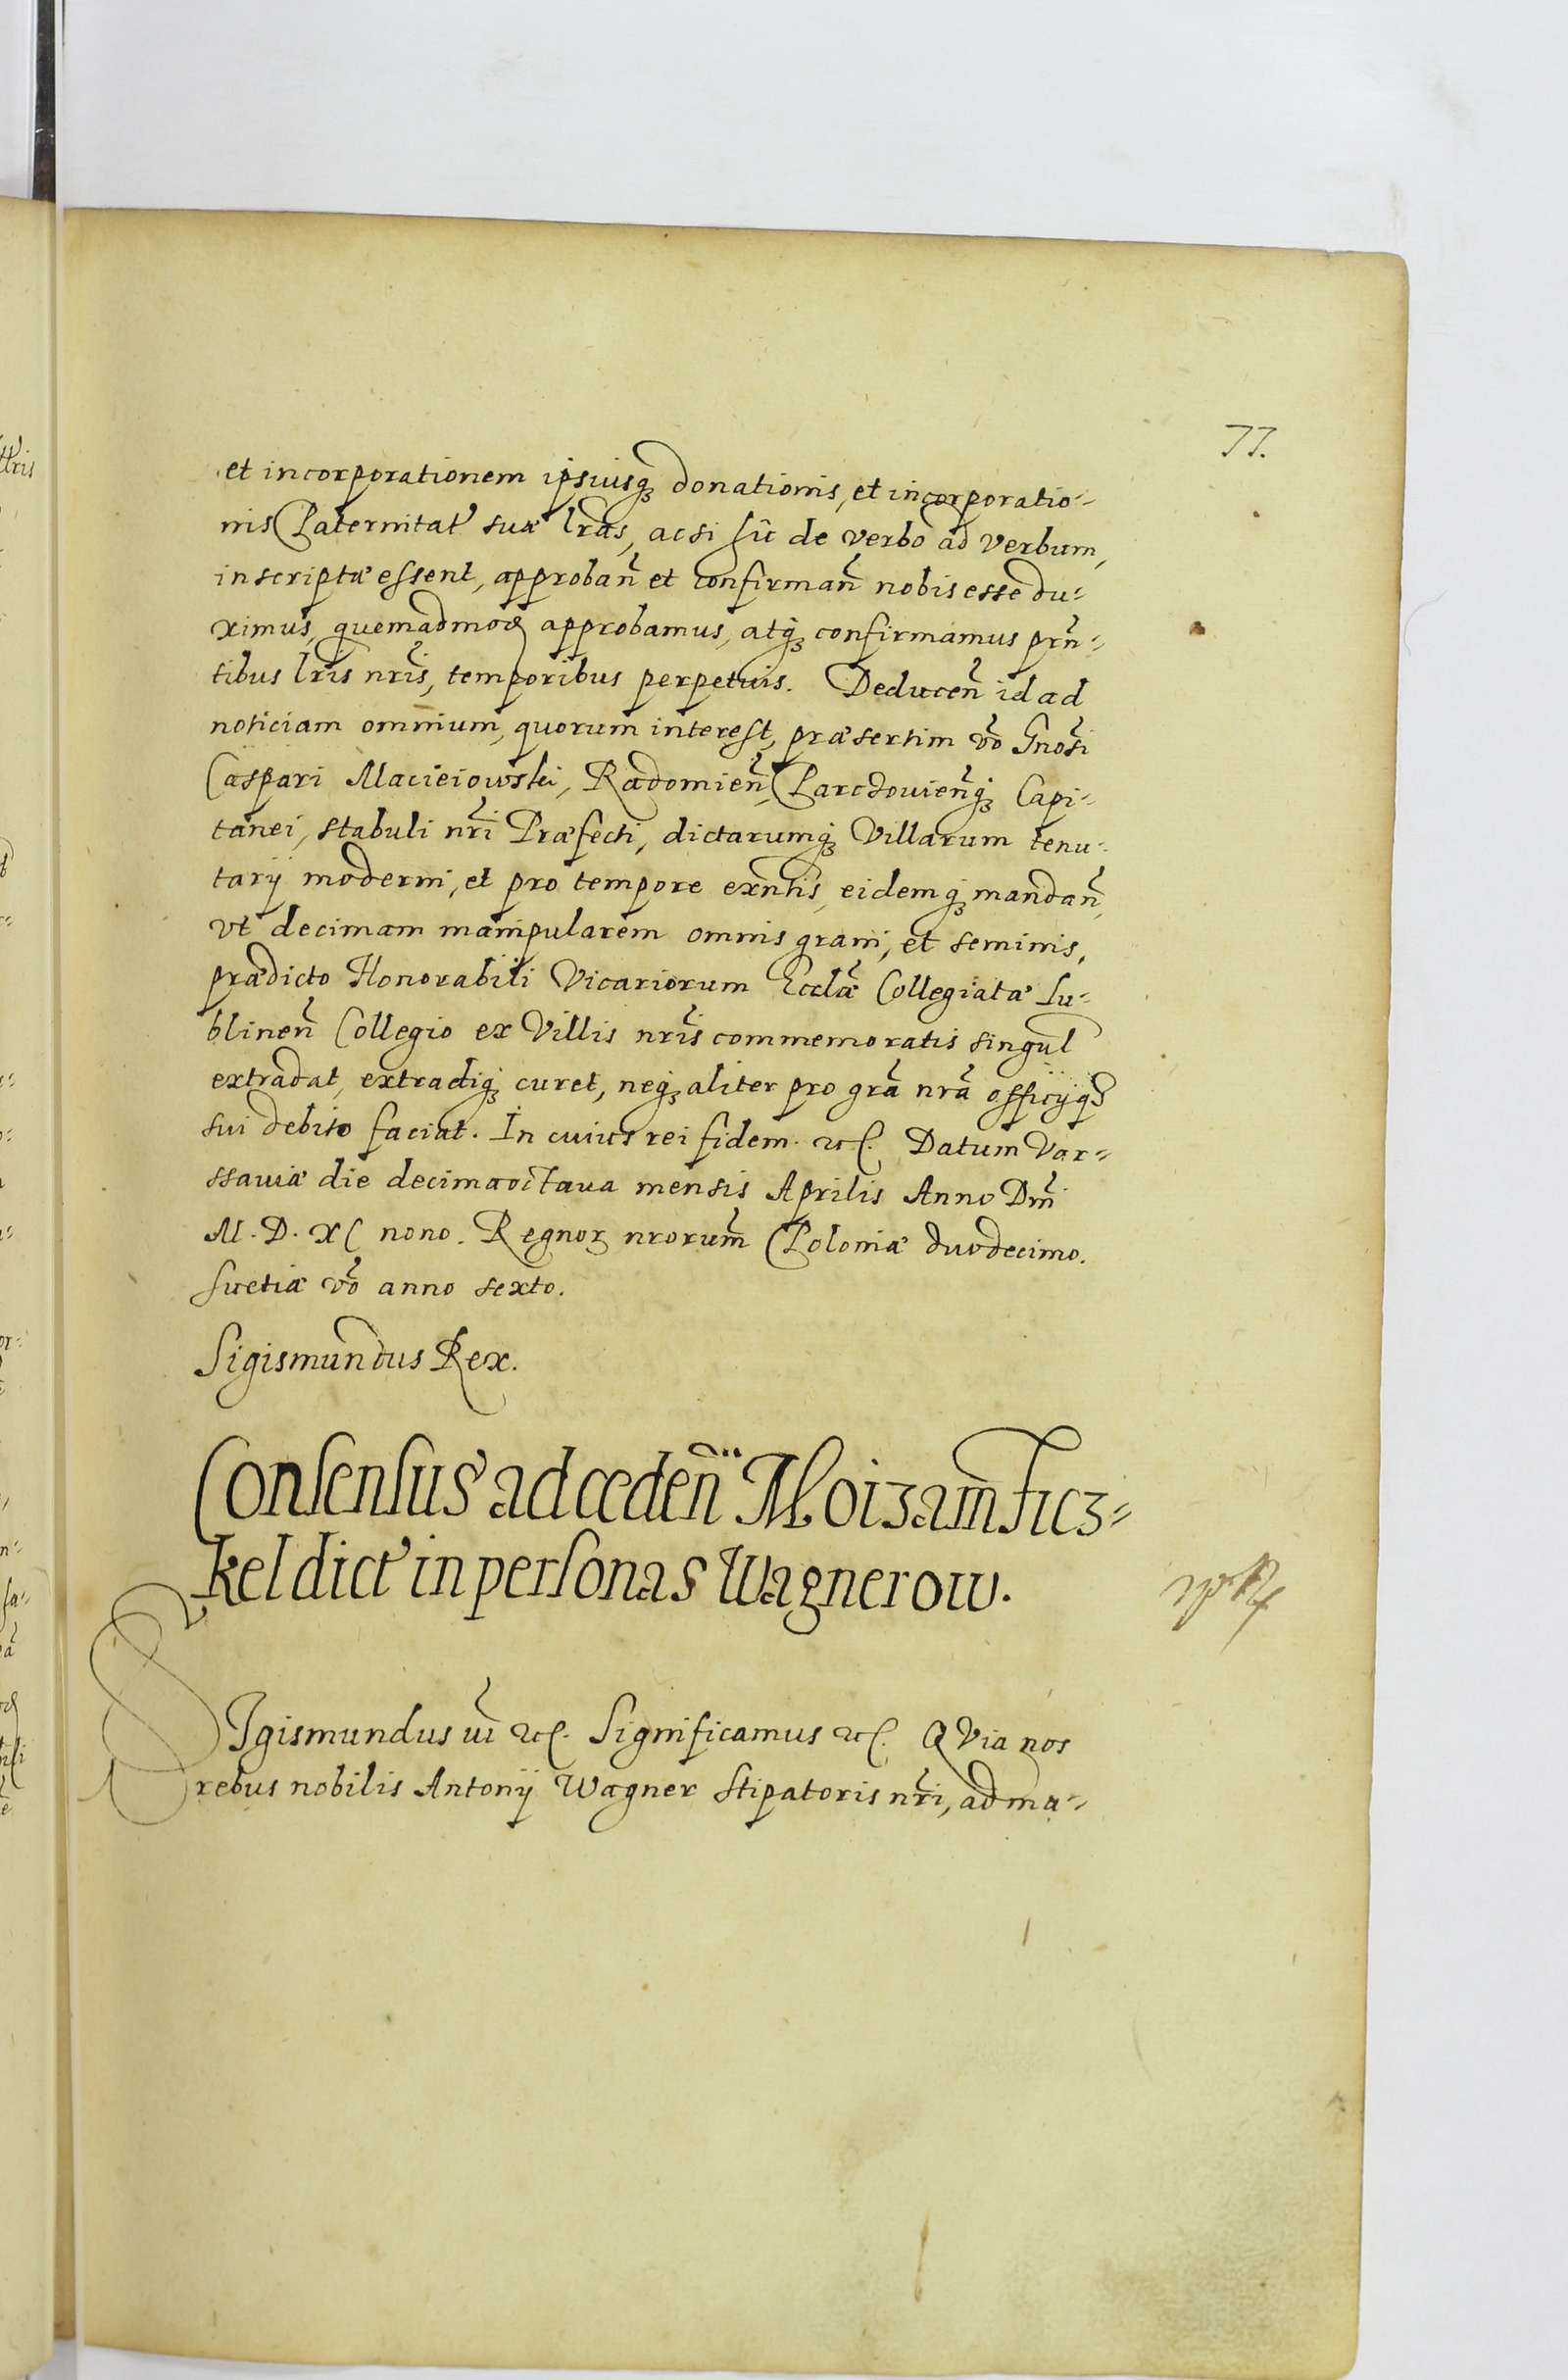 77.
et incorporationem ipsiusq₃ donationis, et incorporatio-
nis Paternitat' suæ lr̃as, ac si hic de verbo ad verbum,
inscriptæ essent, approban̄ et confirman̄ nobis esse du-
ximus, quemadmod approbamus, atq₃ confirmamus prn̄-
tibus lr̃is nr̃is, temporibus perpetuis. Deducen̄ id ad
noticiam omnium, quorum interest, præsertim vō Gnosi
Caspari Macieiowski, Radomien̄, Parczouien̄q₃ Capi-
tanei, stabuli nr̃i Præfecti, dictarumq₃ Villarum tenu-
tarij moderni, et pro tempore exn̄tis, eidemq₃ mandan̄,
vt decimam manipularem omnis grani, et seminis,
prædicto Honorabili Vicariorum Ecclæ̃ Collegiatæ Lu-
blinen̄ Collegio ex Villis nr̃is commemoratis singul
extradat, extradiq₃ curet, neq₃ aliter pro gr̃a nr̃a officijq₃
sui debito faciat. In cuius rei fidem. etc. Datum Var-
ssauiæ die decimaoctaua mensis Aprilis Anno Dn̄i
M. D. XC nono. Regnor nrorum̃ Poloniæ duodecimo.
Suetiæ vō anno sexto.
Sigismundus Rex.
Consensus ad ceden̄ Moizam Ficz-
kel dict' in personas Wagnerow.
SIgismundus iii etc. Significamus etc. QVia nos
rebus nobilis Antonij Wagner Stipatoris nr̃i, ad ma-